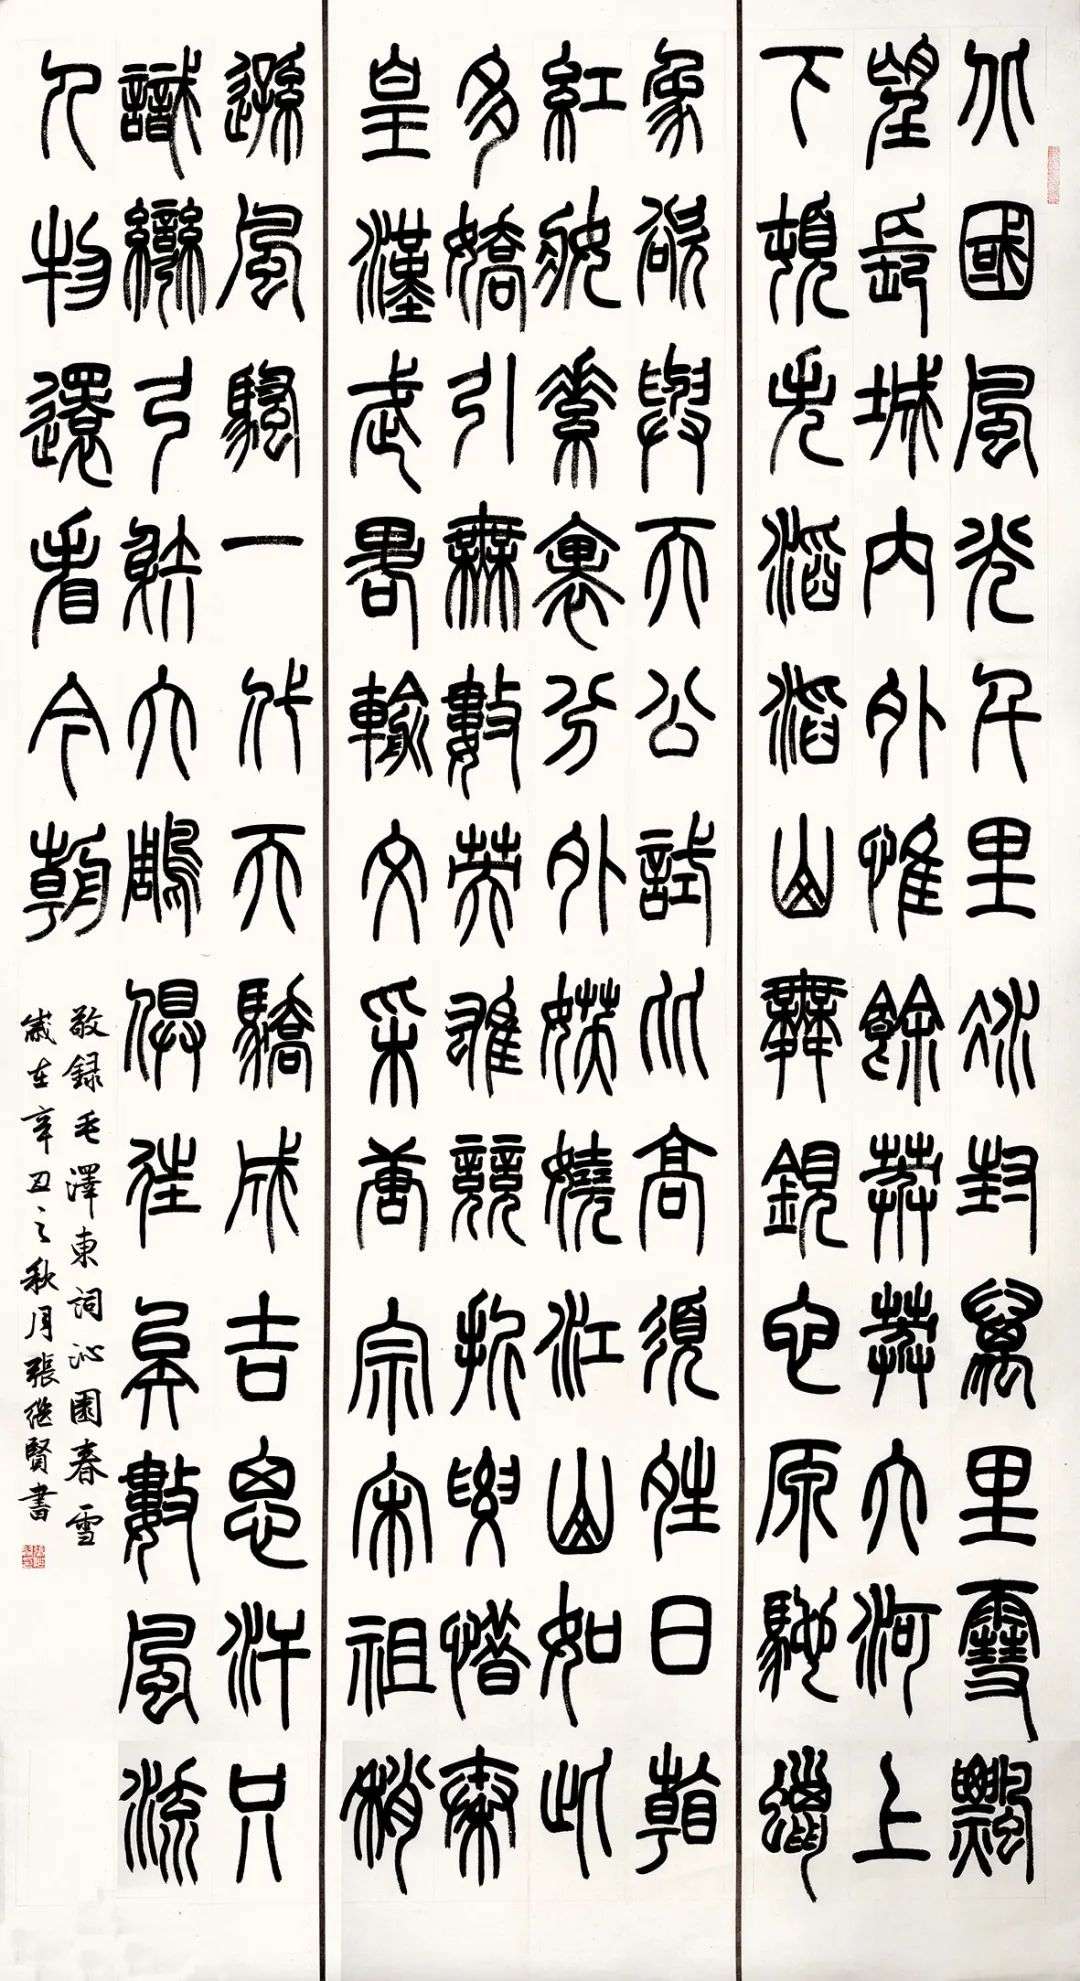 北國風光千里冰封萬里雪飄
望長城內外惟餘莽莽大河上
下頓失滔滔山舞銀蛇原馳蠟
象欲與天公試比高須晴日看
紅妝素裹分外妖嬈江山如此
多嬌引無數英雄競折要惜秦
皇漢武畧輸文采唐宗宋祖稍
遜風騷一代天驕成吉思汗只
識彎弓射大鵰俱往矣數風流
人物還看今朝
敬録毛澤東詞沁園春雪
歲在辛丑之秋月張继賢書